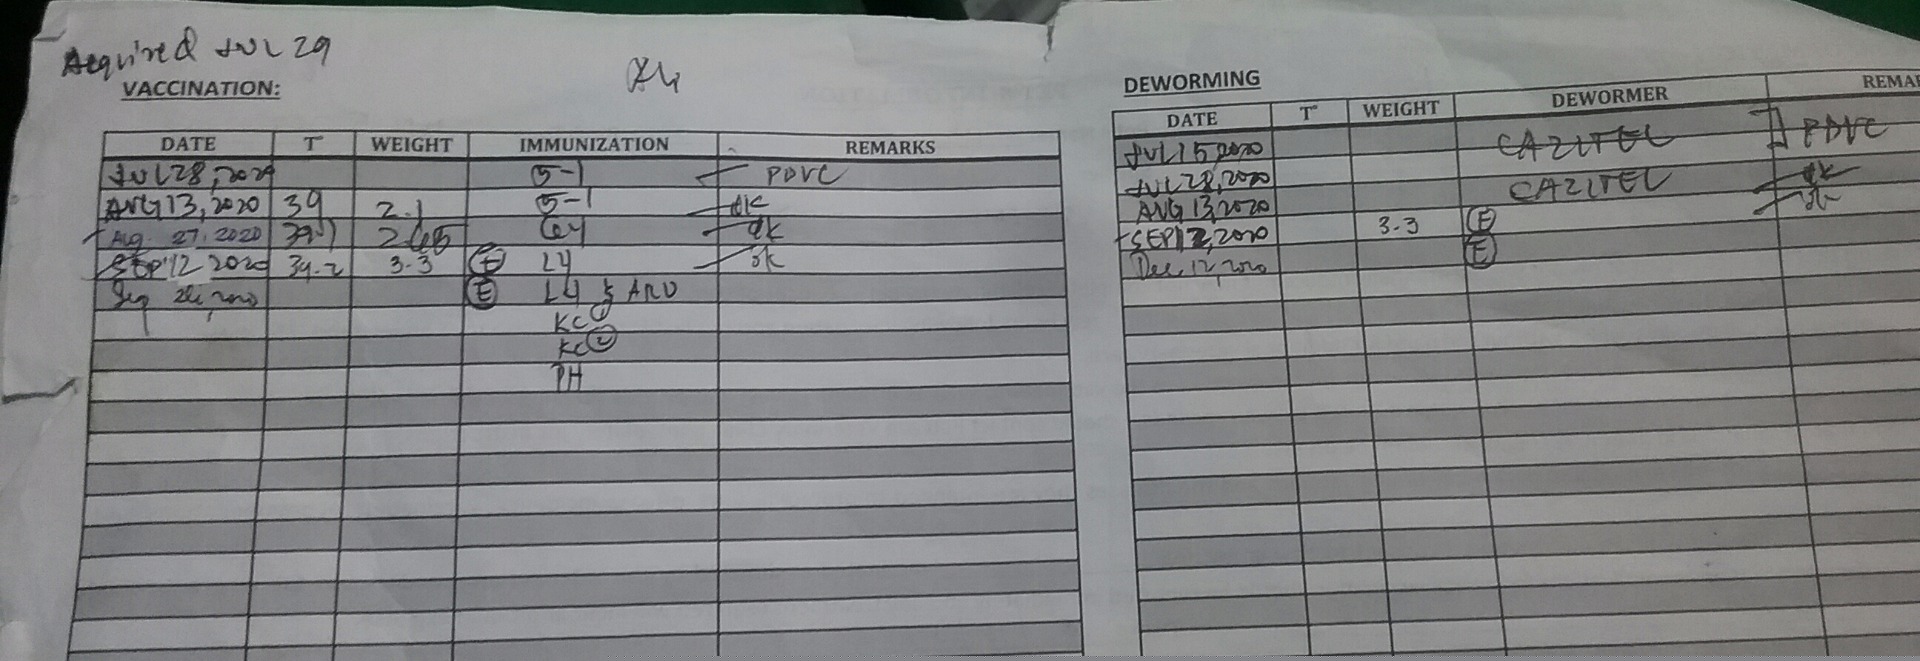 Acquired JUL 29
VACCINATION:
DATE T° WEIGHT IMMUNIZATION REMARKS
JUL 28, 2020 5-1 PDVC
AUG 13, 2020 39 2.1 5-1
Aug. 27, 2020 2.65
SEP 12 2020 39.2 3.3 E L4
E L4 & ARV
KC 1
KC 2
PH
DEWORMING
DATE T° WEIGHT DEWORMER REMAR
JUL 15, 2020 CAZITEL PDVC
JUL 28, 2020
AUG 13, 2020 CAZITEL
SEP 12, 2020 3.3 E
Dec 12, 2020 E